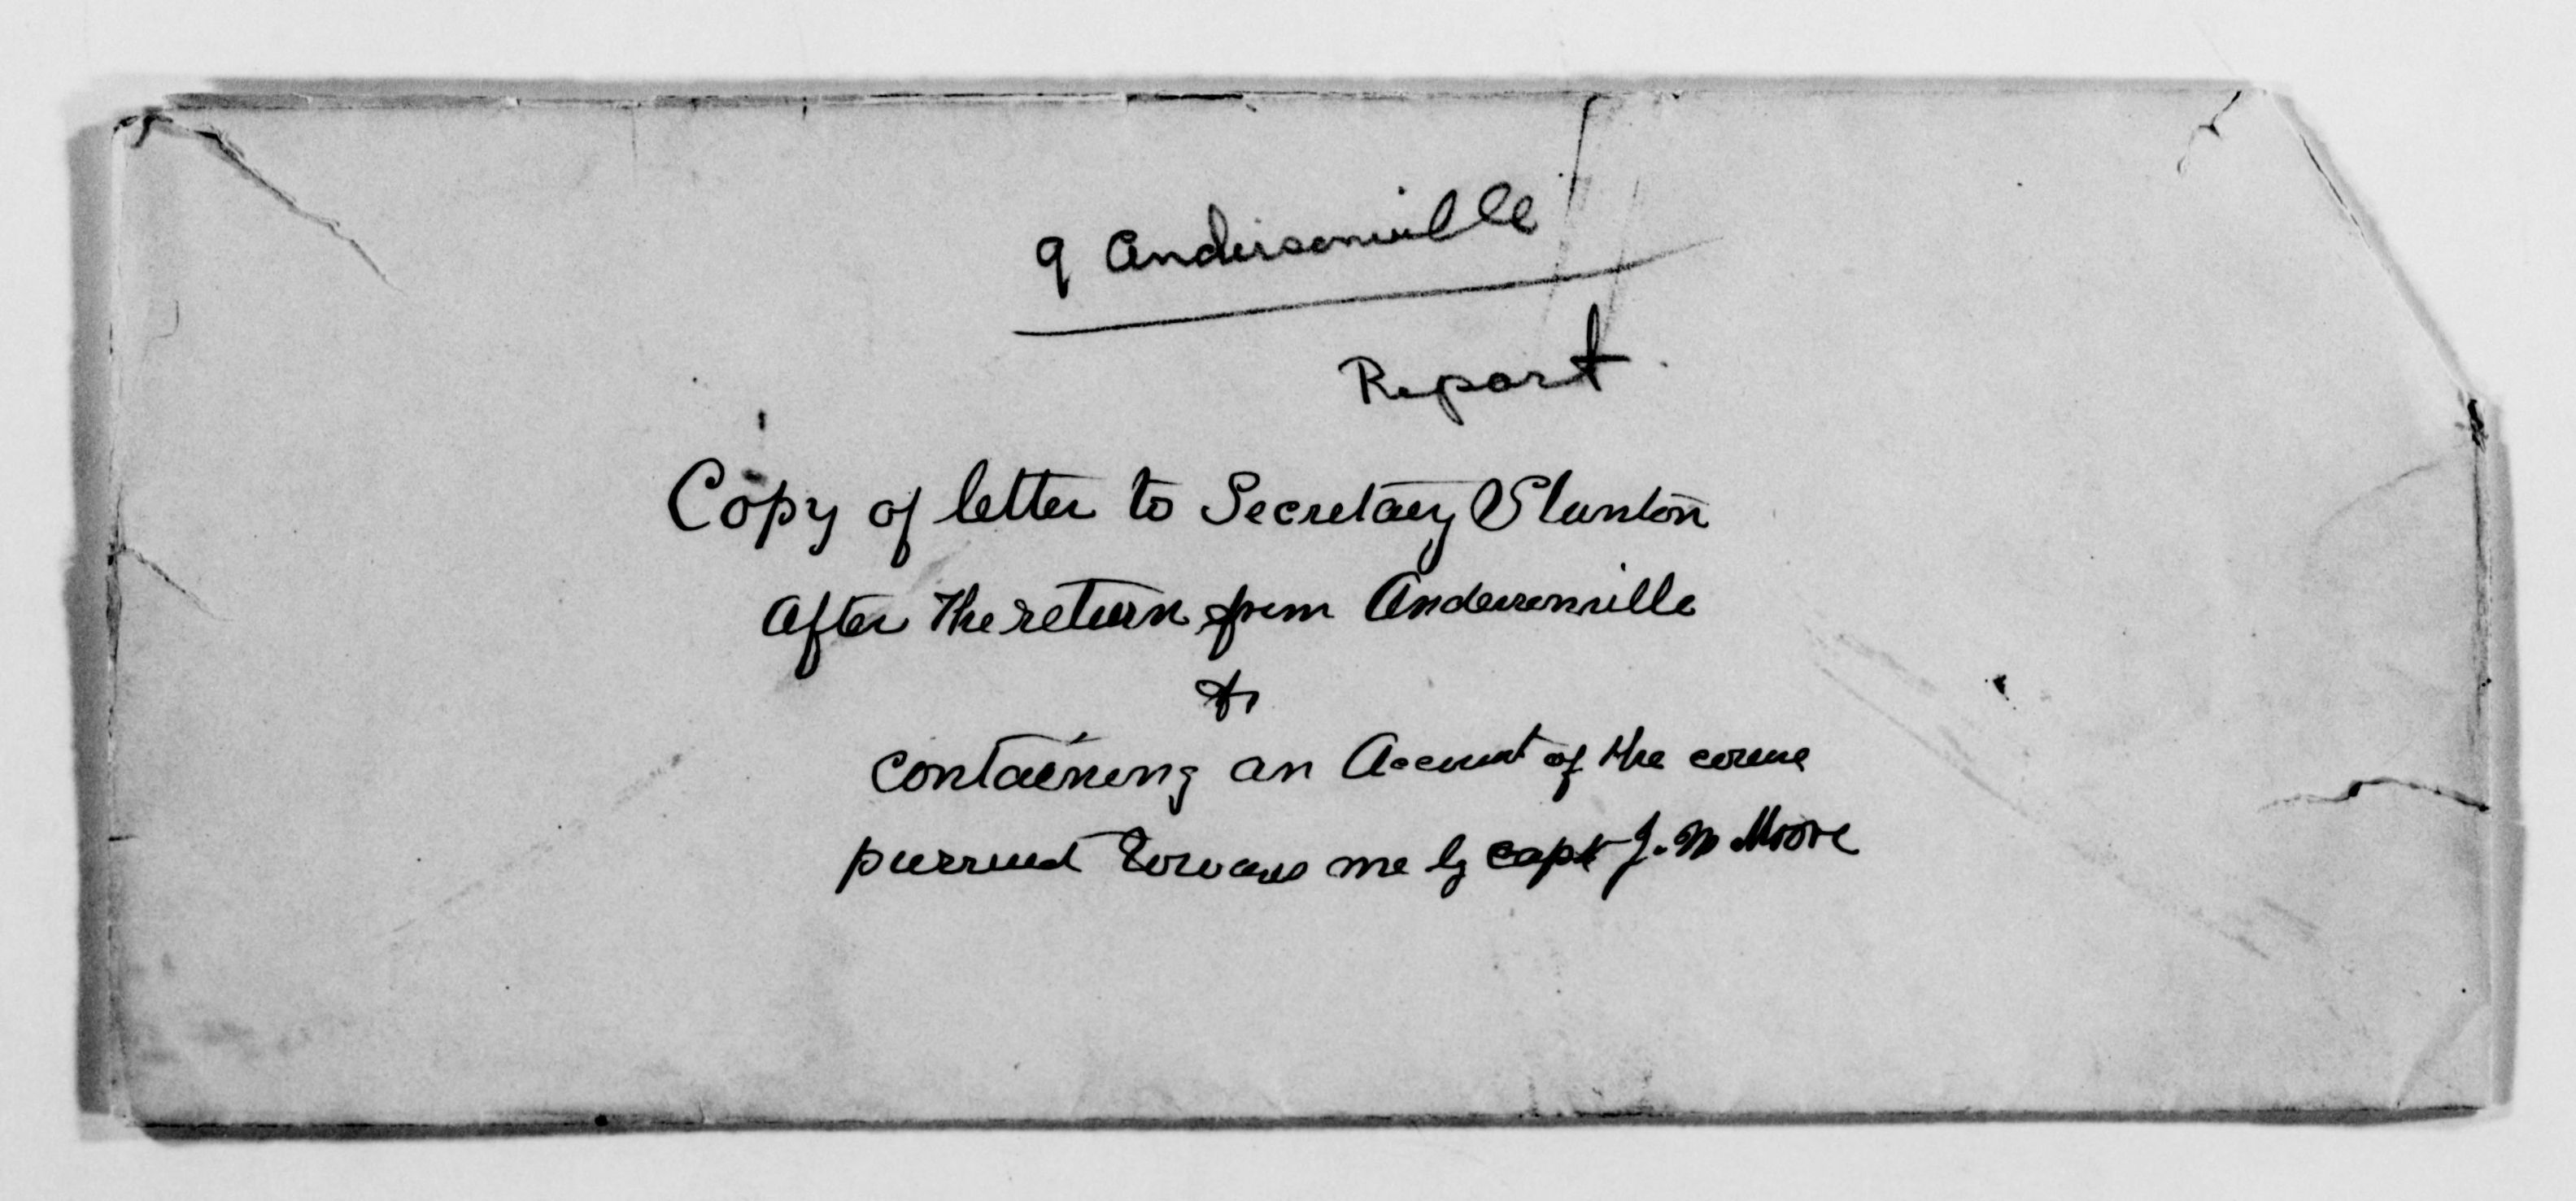 9 Andersonville
Report.
Copy of letter to Secretary Stanton
After the return from Andersonville
&
containing an Account of the course
pursued towards me by capt J. M Moore